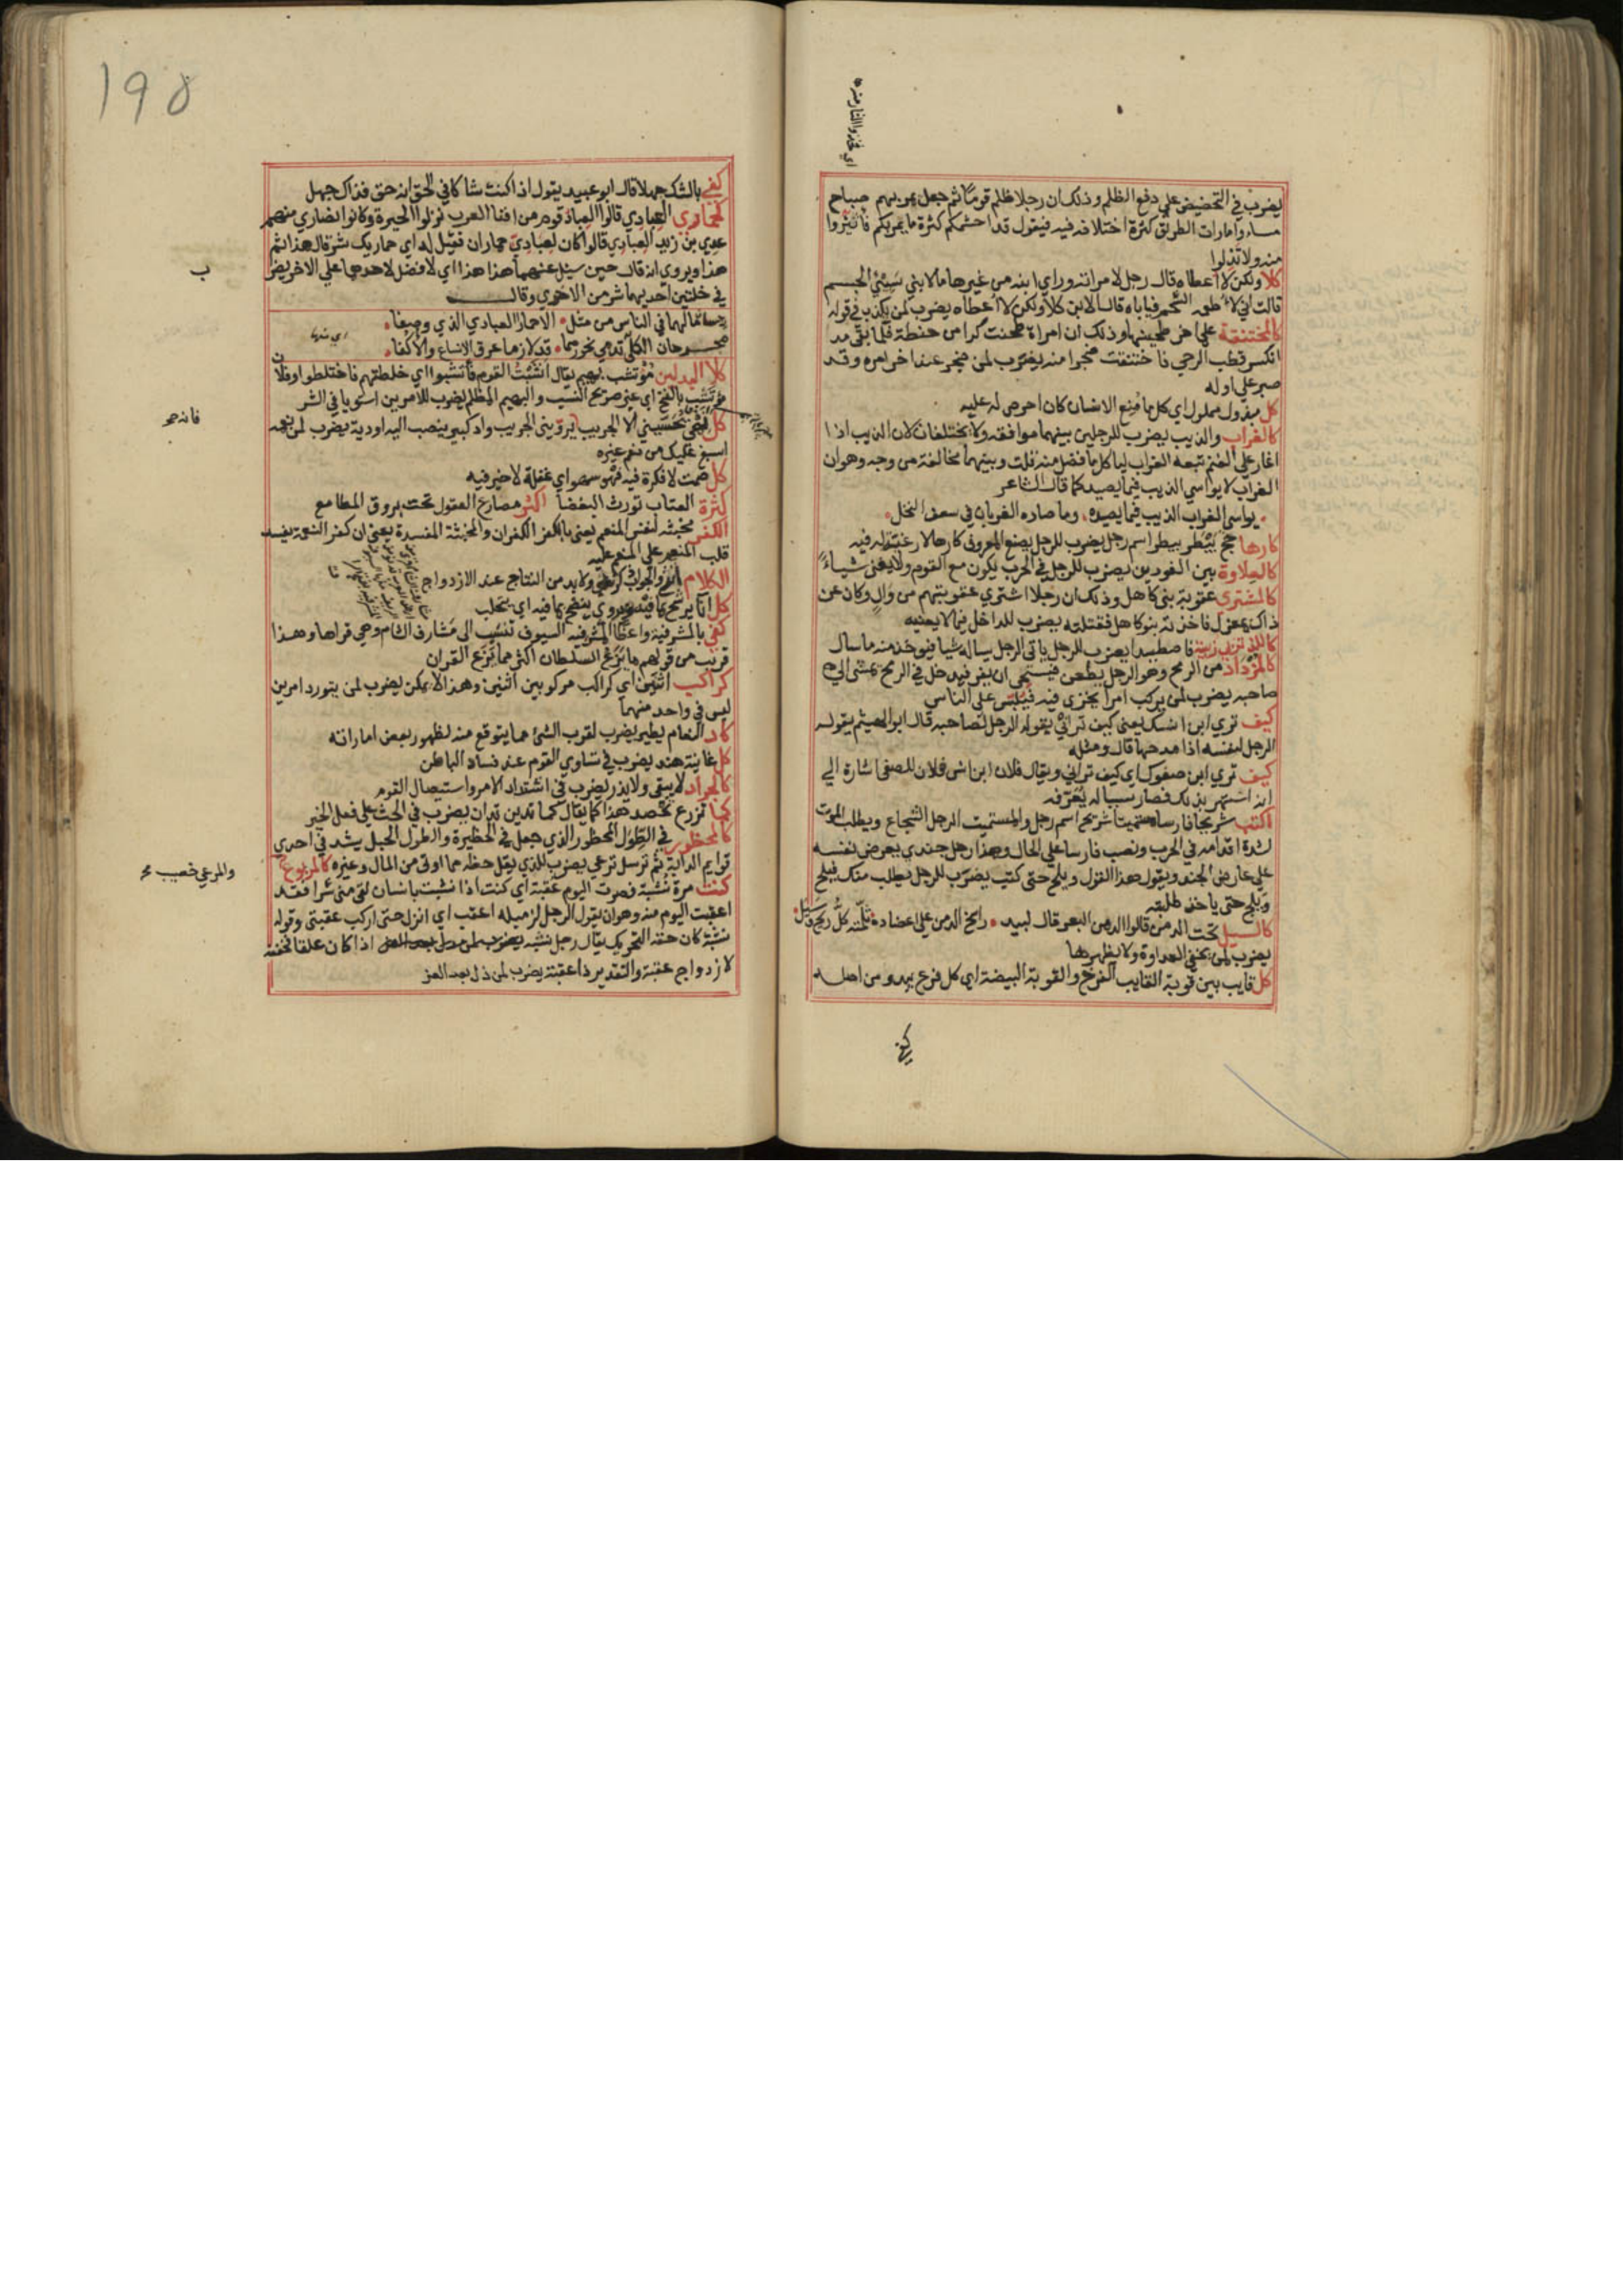 يضرب في التحضيض على دفع الظلم وذلك ان رجلا ظلم قوما ثم جعل يمر بهم صباح
مساء وامارات الطريق كثرة اختلافه فيه فيقول قد احشمكم كثرة ما يمر بكم فاتئروا
منه ولا تذلوا
كلا ولكن لا اعطاه قال رجل لامراته وراي ابنه من غيرها مالابني سيئ الجسم
قالت اني لا طعمه الشحم فياباه قال الابن كلا ولكن لا اعطاه يضرب لمن يكذب في قوله
كالمختنقة على اخر طحينها وذلك ان امراة طحنت كرا من حنطة فلما بقى مد
انكسر قطب الرحي فاختنقت ضجرا منه يضرب لمن ضجر عند اخر امره وقد
صبر على اوله
كل مبذول مملول اي كل ما منع الانسان كان احرص له عليه
كالغراب والذيب يضرب للرجلين بينهما موافقة ولا يختلفان لان الذيب اذا
اغار على الغنم تبعه الغراب لياكل ما فضل منه قلت وبينهما مخالفة من وجه وهو ان
الغراب لا يواسي الذيب فيما يصيد كما قال الشاعر
يواسي الغراب الذيب فيما يصيده وما صاده الغربان في سعف النخل
كارها حج بيطر بيطر اسم رجل يضرب للرجل يصنع المعروف كارها لا رغبة له فيه
كالعلاوة بين الفودين يضرب للرجل في الحرب يكون مع القوم ولا يغنى شياء
كالمشتري عقوبة بني كاهل وذلك ان رجلا اشتري عقوبتهم من وال وكان عن
ذاك بمعزل فاخذته بنو كاهل فقتلته يضرب للداخل فيما لا يعنيه
كاللذ تزبى زبية فاصطيدا يضرب للرجل ياتى الرجل يساله شيا فيوخذ منه ما سال
كالمزداد من الرمح وهو الرجل يطعن فيستحى ان يفر فيدخل في الرمح يمشى الي
صاحبه يضرب لمن يركب امرا يخزى فيه فيلبس على الناس
كيف تري ابن انسك يعنى كيف تراني يقوله الرجل لصاحبه قال ابو الهيثم يقوله
الرجل لنفسه اذا مدحها قال ومثله
كيف تري ابن صفوك اي كيف تراني ويقال فلان ابن انس فلان للصفي اشارة الي
انه اشتهر بذلك فصار نسبا له يعرف به
اكتب شريحا فارسا مستميتا شريح اسم رجل والمستميت الرجل الشجاع ويطلب الموت
لشدة اقدامه في الحرب ونصب فارسا على الحال وهذا رجل جندي يعرض نفسه
على عارض الجند ويقول هذا القول ويلح حتى كتب يضرب للرجل يطلب منك فيلح
ويلح حتى ياخذ طلبته
كالسيل تحت الدمن قالوا الدمن البعر قال لبيد راسخ الدمن على اعضاده ثلمته كل ريح وسبل
يضرب لمن يخفى العداوة ولا يظهرها
كل قايب بين قوبة القايب الفرخ والقوبة البيضة اي كل فرع يبدو من اصله
كفى
198
كفى بالشك جهلا قال ابو عبيد يقول اذا كنت شاكا في الحق انه حق فذاك جهل
كحماري العبادي قالوا العباد قوم من افنا العرب نزلوا الحيرة وكانوا نصاري منهم
عدي بن زيد العبادي قالوا كان لعبادي حماران فقيل له اي حماريك شر قال هذا ثم
هذا ويروى انه قال حين سيل عنهما هذا هذا اي لا فضل لاحدهما على الاخر يضرب
ب
في خلتين احديهما شر من الاخرى وقال
مالهما في الناس من مثل الا حمارا العبادي الذي وصفا
مجرحان الكلي تدمي نحورهما قد لازما عرق الانساع والاكفا
كلا البدلين مؤتشب بهيم يقال اشبت القوم فأتشبوا اي خلطتهم فاختلطوا وفلان
مؤتشب بالفتح اي غير صريح النسب والبهيم المظلم يضرب للامرين استويا في الشر
كل يحسبني الا الجريب يرويني الجريب واد كبير ينصب اليه اودية يضرب لمن نعمه
فانه
اسبغ عليك من نعم غيره
كل صمت لا فكرة فيه فهو سهو اي غفلة لا خير فيه
كثرة العتاب تورث البغضا اكثر مصارع العقول تحت بروق المطامع
الكفر مخبثة لنفس المنعم يعنى بالكفر الكفران والمخبثة المفسدة يعني ان كفر النعمة يفسد
قلب المنعم على المنعم عليه
الكلام والجواب ولا بد من النتاج عند الازدواج
كل انا يرشح بما فيه ويروي ينضح بما فيه اي يتحلب
كفى بالمشرفية واعظا المشرفية السيوف تنسب الى مشارف الشام وهي قراها وهذا
قريب من قولهم ما يزع السلطان اكثر مما يزع القران
كراكب اثنين اي كراكب مركوبين اثنين وهذا لا يمكن يضرب لمن يتورد امرين
ليس في واحد منهما
كاد النعام يطير يضرب لقرب الشئ مما يتوقع منه لظهور بعض اماراته
كل غانية هند يضرب في تساوي القوم عند فساد الباطن
كالجراد لا يبقى ولا يذر يضرب في اشتداد الامر واستيصال القوم
كما تزرع تحصد هذا كما يقال كما تدين تدان يضرب في الحث على فعل الخير
كالمحظور في الطول المحظور الذي جعل في الحظيرة والطول الحبل يشد في احدي
قوايم الدابة ثم ترسل ترعي يضرب للذي يقل حظه مما اوتى من المال وغيره كالمربوع
والمرعي خصيب
كنت مرة نشبة فصرت اليوم عقبة اي كنت اذا نشبت بانسان لقى منى شرا فقد
اعقبت اليوم منه وهو ان يقول الرجل لزميله اعقب اي انزل حتى اركب عقبتى وقوله
نشبة كان حقه التحريك يقال رجل نشبه اذا كان علقا فخففه
لازدواج عقبة والتقدير ذا عقبة يضرب لمن ذل بعد العز